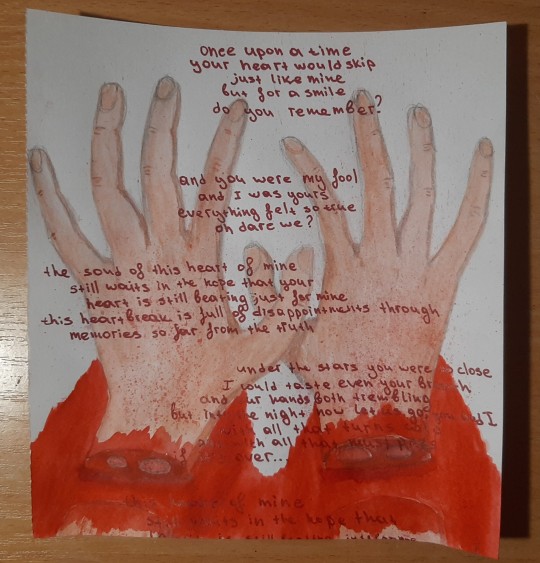 Once upon a time
your heart would skip
just like mine
but for a smile
do you remember?
and you were my fool
and I was yours
everything felt so true
oh dare we?
the soud of this heart of mine
still waits in the hope that your
heart is still beating just for mine
this heartbreak is full of disappointments through
memories so far from the truth
under the stars you were so close
I would taste even your breath
and our hands both trembling
but into the night now let us go you and I
with all that turns
and with all that must
if over...
this heart of mine
still waits in the hope that